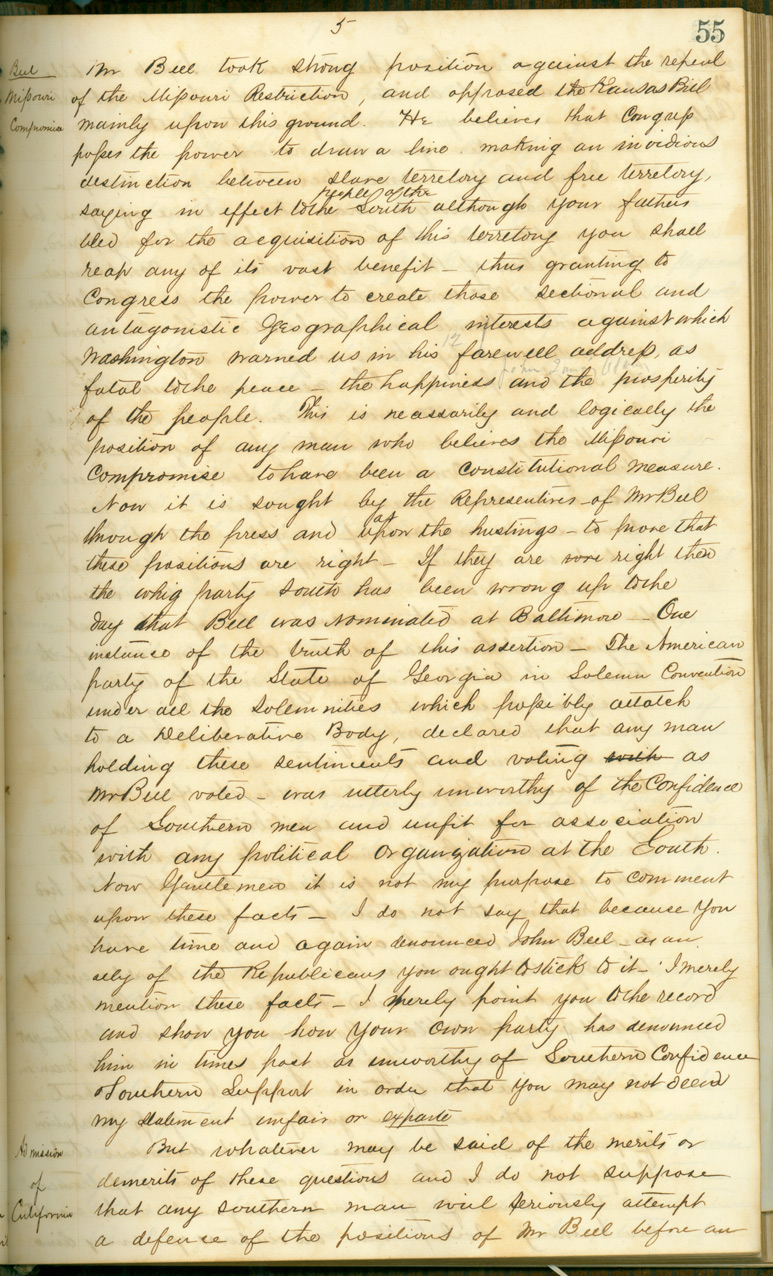 5
55
Bell
Missouri
Compromise
Mr Bell took strong position against the repeal
of the Missouri Restriction, and opposed the Kansas Bill
mainly upon this ground. He believes that Congress
posses the power to draw a line making an invidious
destinction between slave territory and free territory,
people of the
saying in effect to the South although your fathers
bled for the acquisition of this territory you shall
reap any of its vast benefit - thus granting to
Congress the power to create those sectional and
antagonistic Geographical interests against which
Washington warned us in his farewell address, as
fatal to the peace - the happiness and the prosperity
of the people. This is necessarily and logically the
position of any man who believes the Missouri
Compromise to have been a Constitutional measure.
Now it is sought by the Representives of Mr Bell
through the press and upon the hustings - to prove that
these positions are right - If they are right then
the whig party South has been wrong up to the
day that Bell was Nominated at Baltimore - One
instance of the truth of this assertion - The American
party of the State of Georgia in Solemn Convention
under all the Solemnities which possibly attatch
to a Deliberative Body, declared that any man
holding these sentiments and voting such as
Mr Bell voted - was utterly unworthy of the Confidence
of Southern men and unfit for association
with any political Organization at the South.
Now Gentlemen it is not my purpose to comment
upon these facts - I do not say that because You
have time and again denounced John Bell - as an
ally of the Republicans you ought to stick to it - I merely
mention these facts - I merely point you to the record
and show you how Your own party has denounced
him in times past as unworthy of Southern Confidence
& Southern Support in order that you may not deem
my statement unfair or exparte
Admission
of
California
But whatever may be said of the merits or
demerits of these questions and I do not suppose
that any southern man will seriously attempt
a defense of the positions of Mr Bell before an